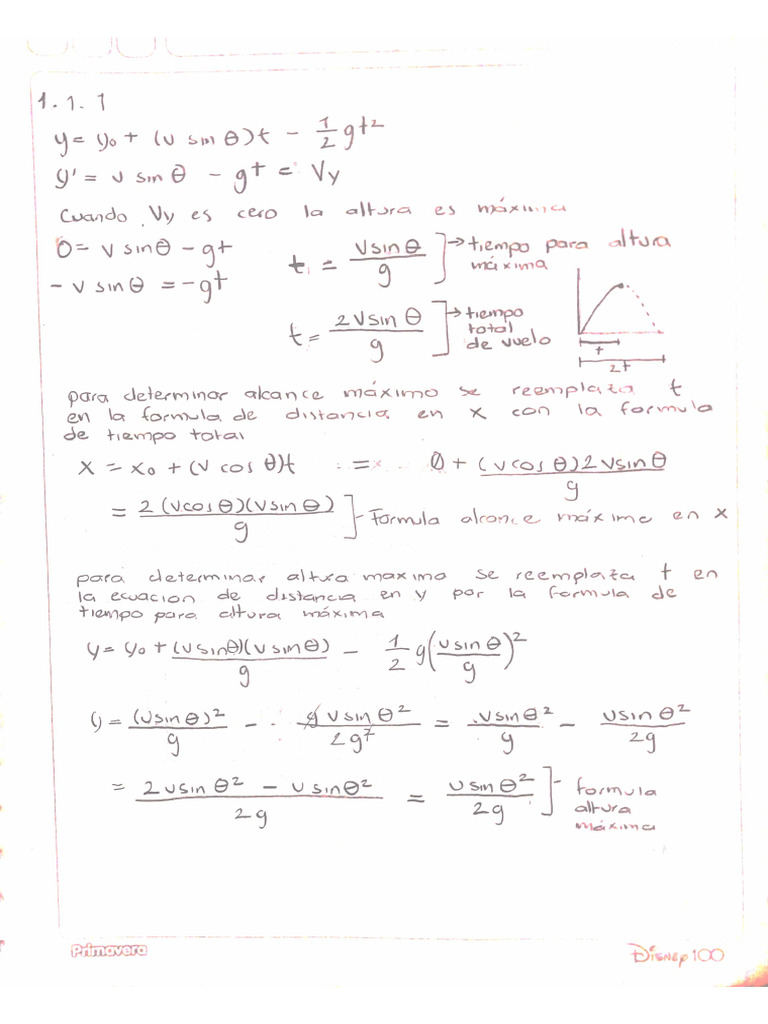 1.1.1
y = y₀ + (v sin θ)t - 1/2 gt²
y' = v sin θ - gt = Vy
Cuando Vy es cero la altura es máxima
0 = v sinθ - gt
- v sinθ = -gt
t = Vsinθ / g ]→ tiempo para altura máxima
t = 2Vsinθ / g ]→ tiempo total de vuelo
t
2t
para determinar alcance máximo se reemplata t
en la formula de distancia en x con la formula
de tiempo total
x = x₀ + (v cos θ)t = 0 + (v cos θ)2Vsinθ / g
= 2(vcosθ)(vsinθ) / g ]- Formula alcance máximo en x
para determinar altura maximo se reemplata t en
la ecuacion de distancia en y por la formula de
tiempo para altura máxima
y = y₀ + (v sinθ)(v sinθ) / g - 1/2 g(v sinθ / g)²
y = (vsinθ)² / g - g v sinθ² / 2g² = v sinθ² / g - v sinθ² / 2g
= 2v sinθ² - v sinθ² / 2g = v sinθ² / 2g ]- formula altura máxima
Primavera
Disney 100